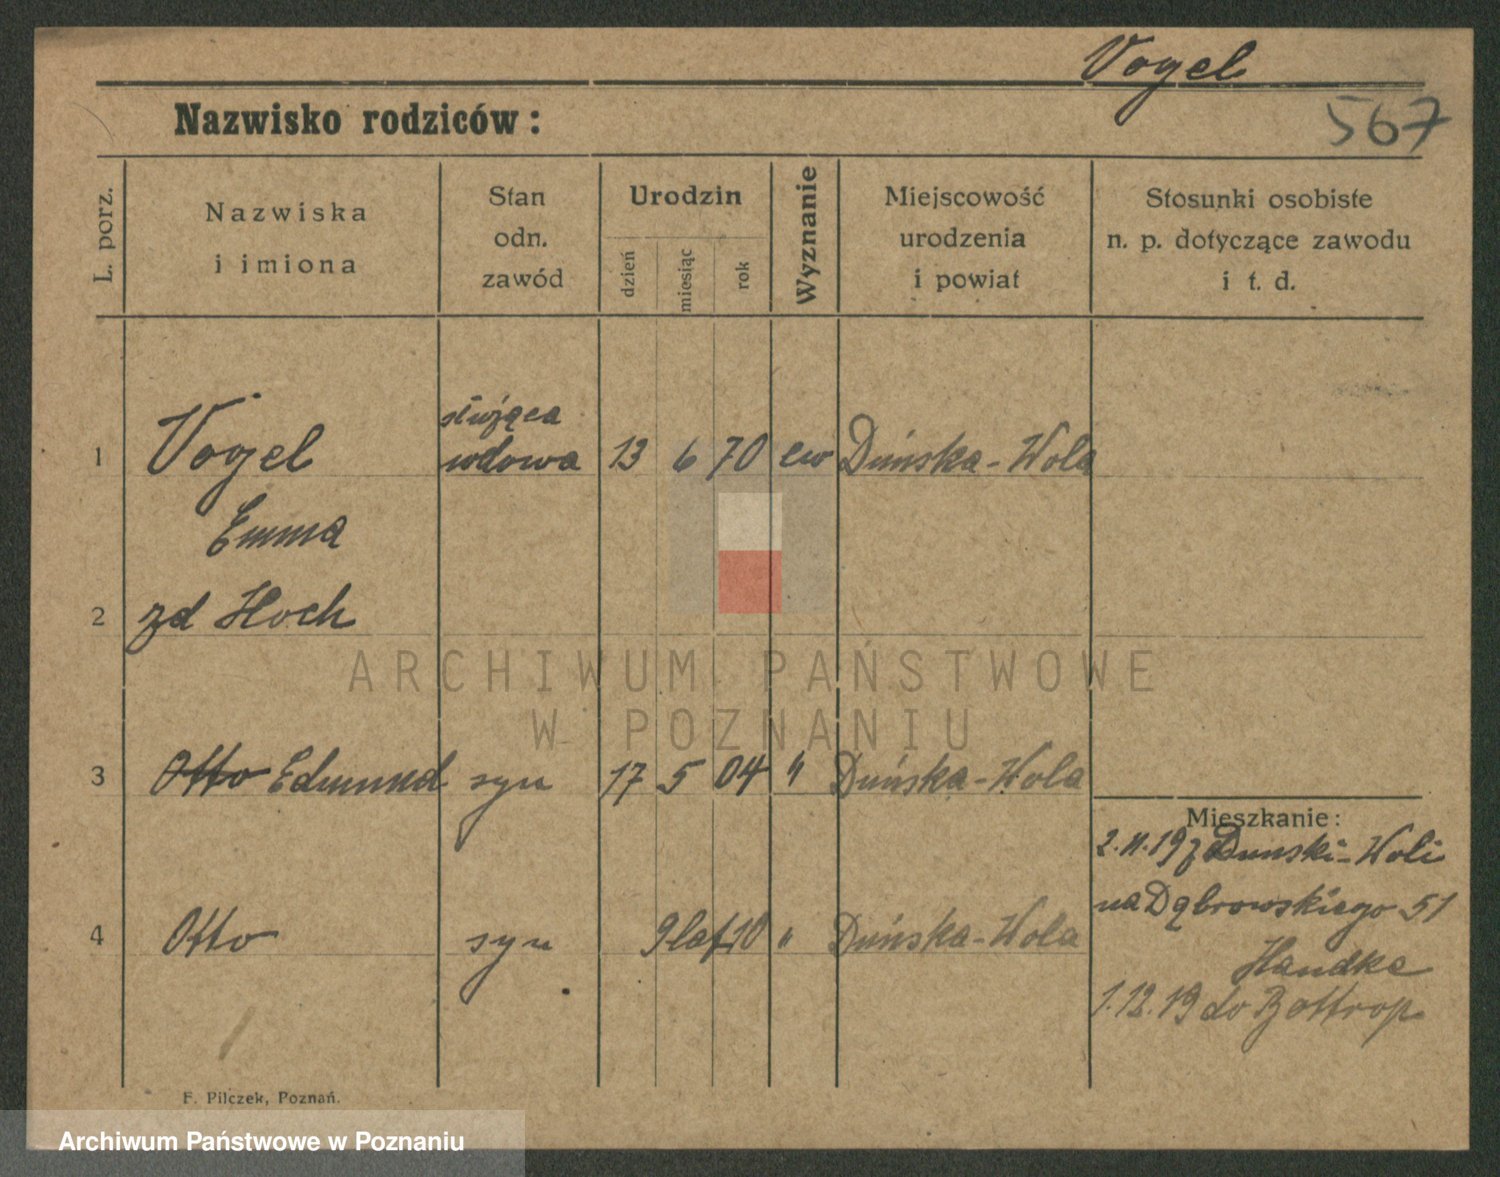 Vogel
Nazwisko rodziców:
567
L. porz.
Nazwiska
i imiona
Stan
odn.
zawód
Urodzin
dzień
miesiąc
rok
Wyznanie
Miejscowość
urodzenia
i powiat
Stosunki osobiste
n. p. dotyczące zawodu
i t. d.
służąca
1 Vogel wdowa 13 6 70 ew Duńska-Wola
Emma
2 zd Hoch
3 Otto Edmund syn 17 5 04 " Duńska-Wola
Mieszkanie:
2.11.19 z Dunski-Woli
na Dąbrowskiego 51
4 Otto syn 9 lat 10 " Duńska-Wola
Handke
1.12.19 do Bottrop
F. Pilczek, Poznań.
ARCHIWUM PAŃSTWOWE
W POZNANIU
Archiwum Państwowe w Poznaniu